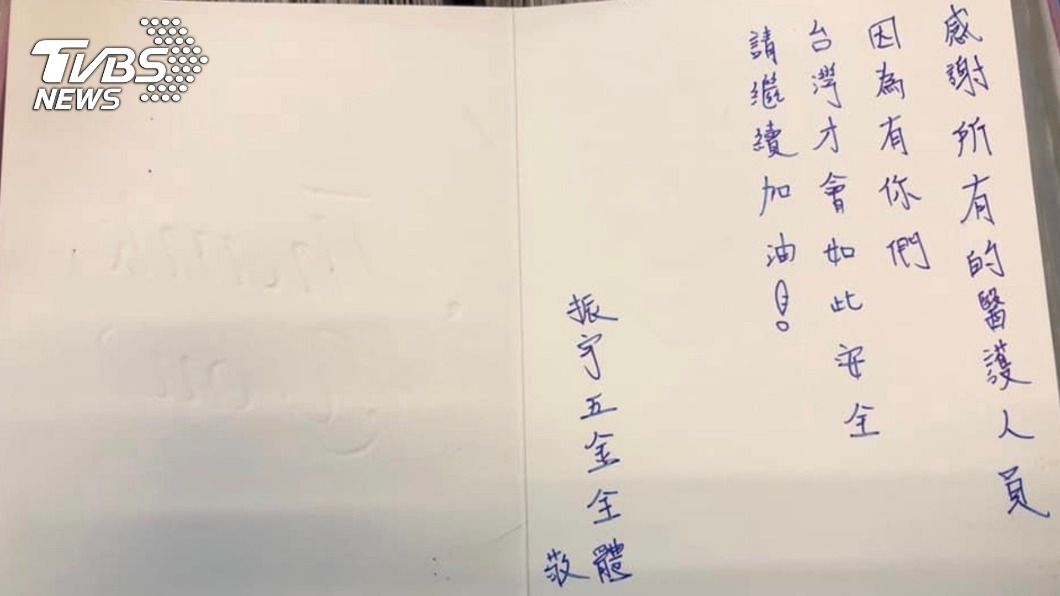 TVBS
NEWS
感謝所有的醫護人員
因為有你們
台灣才會如此安全
請繼續加油!
振宇五金全體
敬